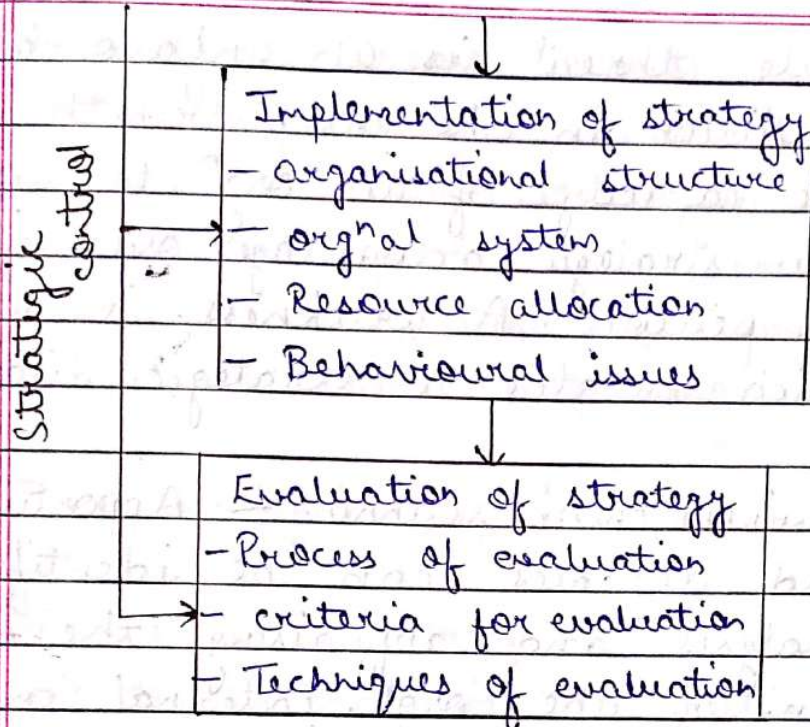 Implementation of strategy
- Organisational structure
- orgⁿal system
- Resource allocation
- Behavioural issues
Strategic
control
Evaluation of strategy
- Process of evaluation
- criteria for evaluation
- Techniques of evaluation